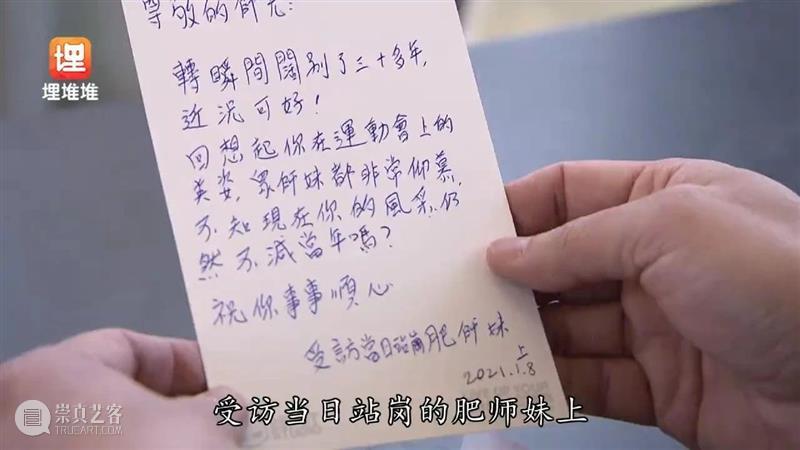 埋
埋堆堆
尊敬的师兄:
轉瞬間闊別了三十多年,
近況可好!
回想起你在運動會上的
英姿,眾师妹都非常仰慕,
不知現在你的風采仍
然不減當年嗎?
祝你事事順心
受訪當日站崗肥师妹
上
2021.1.8
受访当日站岗的肥师妹上
崇真艺客
TRUEART.COM